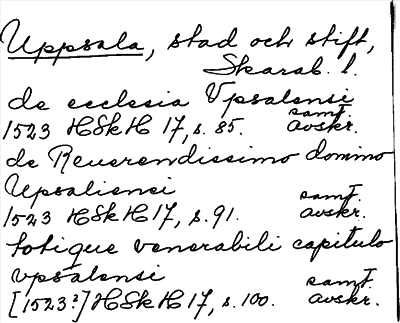 Uppsala, stad och stift,
Skarab. l.
de ecclesia Vpsalensi
1523 HSkH 17, s. 85. samt. avskr.
de Reuerendissimo domino
Upsaliensi
1523 HSkH 17, s. 91. samt. avskr.
totique venerabili capitulo
vpsalensi
[1523?] HSkH 17, s. 100. samt. avskr.